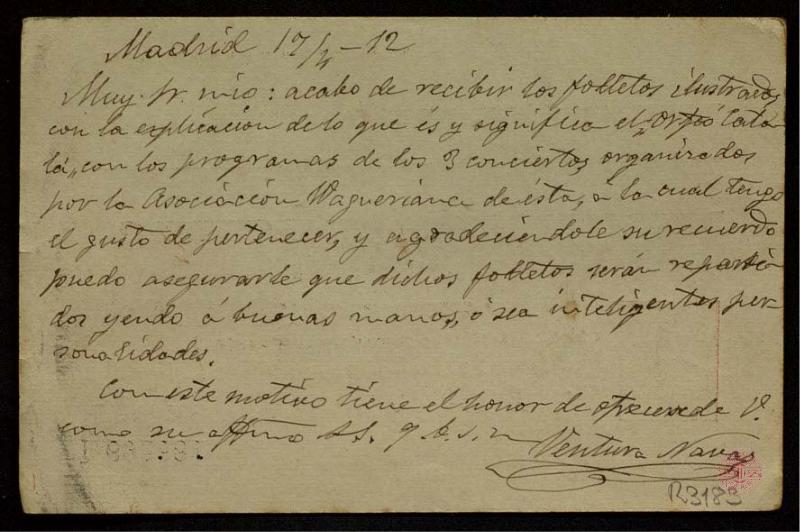 Madrid 17/4-12
Muy Sr. mio: acabo de recibir los folletos ilustrados
con la explicación de lo que és y significa el „Orfeó Cata
lá„ con los programas de los 3 conciertos organizados
por la Asociación Wagneriana de ésta, á la cual tengo
el gusto de pertenecer, y agradeciéndole su recuerdo
puedo asegurarle que dichos folletos serán reparti
dos yendo á buenas manos, ó sea inteligentes per
sonalidades.
Con este motivo tiene el honor de ofrecerse de V.
como su affmo S.S. q. b. s. m
Ventura Navas
R3183